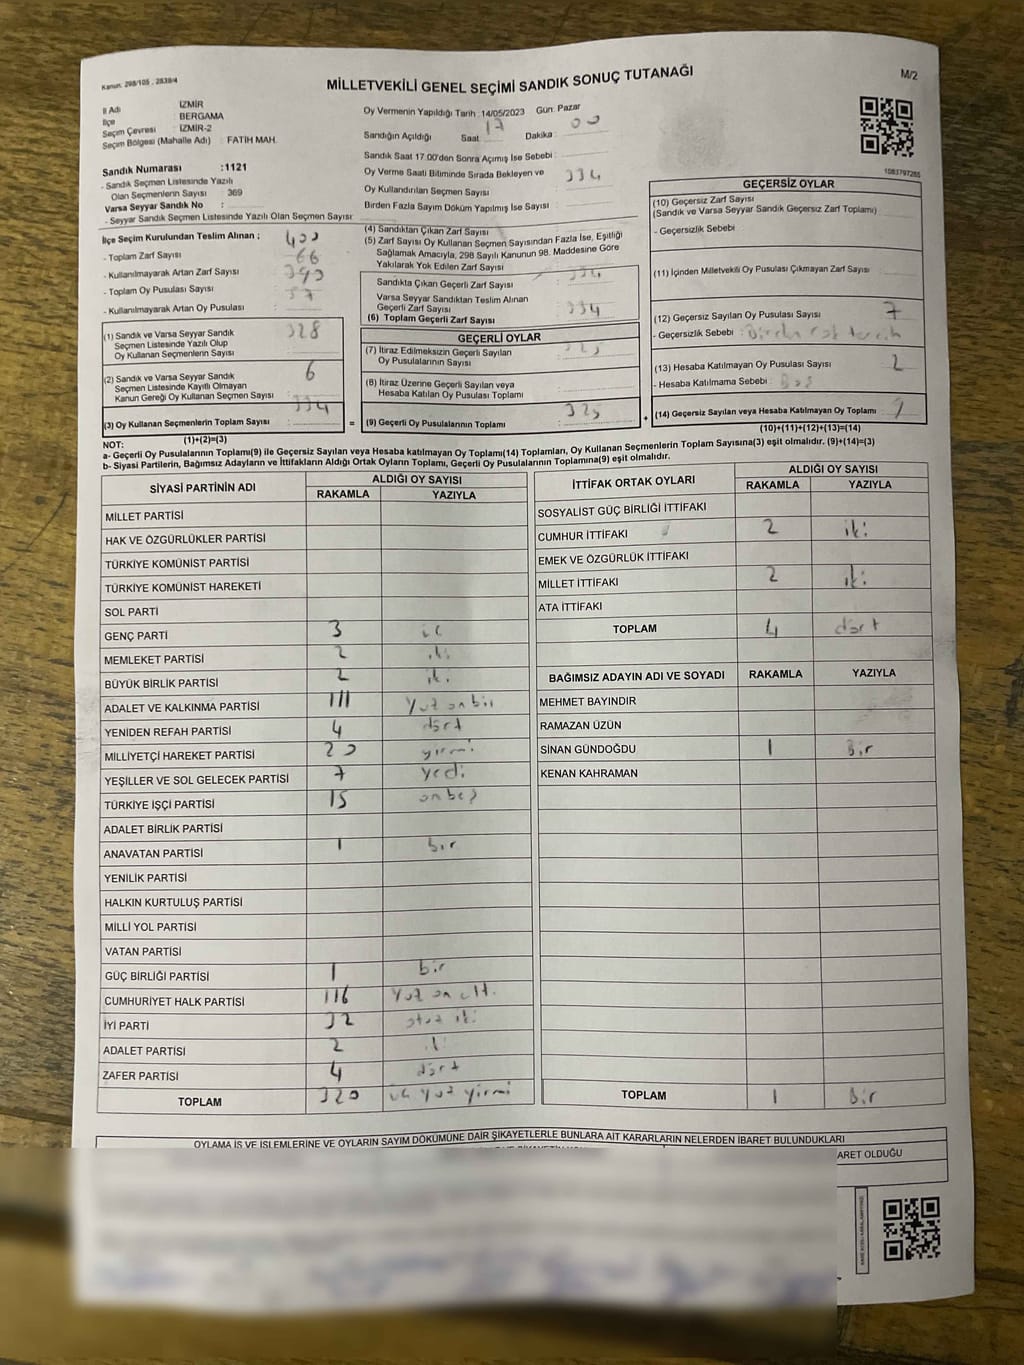 Kanun: 298/105 , 2839/4
MİLLETVEKİLİ GENEL SEÇİMİ SANDIK SONUÇ TUTANAĞI
M/2
İl Adı : İZMİR
İlçe : BERGAMA
Seçim Çevresi : İZMİR-2
Seçim Bölgesi (Mahalle Adı) : FATİH MAH.
Oy Vermenin Yapıldığı Tarih :14/05/2023 Gün: Pazar
Sandığın Açıldığı Saat 17 Dakika : 00
Sandık Saat 17.00'den Sonra Açımış İse Sebebi :
Sandık Numarası :1121
- Sandık Seçmen Listesinde Yazılı
Olan Seçmenlerin Sayısı : 369
Varsa Seyyar Sandık No :
- Seyyar Sandık Seçmen Listesinde Yazılı Olan Seçmen Sayısı:
Oy Verme Saati Bitiminde Sırada Bekleyen ve
Oy Kullandırılan Seçmen Sayısı : 334
Birden Fazla Sayım Döküm Yapılmış İse Sayısı :
1083797265
İlçe Seçim Kurulundan Teslim Alınan ;
- Toplam Zarf Sayısı : 400
- Kullanılmayarak Artan Zarf Sayısı : 66
- Toplam Oy Pusulası Sayısı : 390
- Kullanılmayarak Artan Oy Pusulası : 57
(1) Sandık ve Varsa Seyyar Sandık
Seçmen Listesinde Yazılı Olup
Oy Kullanan Seçmenlerin Sayısı : 328
(2) Sandık ve Varsa Seyyar Sandık
Seçmen Listesinde Kayıtlı Olmayan
Kanun Gereği Oy Kullanan Seçmen Sayısı : 6
(3) Oy Kullanan Seçmenlerin Toplam Sayısı : 334
(1)+(2)=(3)
(4) Sandıktan Çıkan Zarf Sayısı :
(5) Zarf Sayısı Oy Kullanan Seçmen Sayısından Fazla İse, Eşitliği
Sağlamak Amacıyla, 298 Sayılı Kanunun 98. Maddesine Göre
Yakılarak Yok Edilen Zarf Sayısı :
Sandıkta Çıkan Geçerli Zarf Sayısı : 334
Varsa Seyyar Sandıktan Teslim Alınan
Geçerli Zarf Sayısı :
(6) Toplam Geçerli Zarf Sayısı : 334
GEÇERLİ OYLAR
(7) İtiraz Edilmeksizin Geçerli Sayılan
Oy Pusulalarının Sayısı : 325
(8) İtiraz Üzerine Geçerli Sayılan veya
Hesaba Katılan Oy Pusulası Toplamı :
= (9) Geçerli Oy Pusulalarının Toplamı : 325
GEÇERSİZ OYLAR
(10) Geçersiz Zarf Sayısı
(Sandık ve Varsa Seyyar Sandık Geçersiz Zarf Toplamı)
- Geçersizlik Sebebi
(11) İçinden Milletvekili Oy Pusulası Çıkmayan Zarf Sayısı :
(12) Geçersiz Sayılan Oy Pusulası Sayısı : 7
- Geçersizlik Sebebi :
(13) Hesaba Katılmayan Oy Pusulası Sayısı : 2
- Hesaba Katılmama Sebebi : Boş
+ (14) Geçersiz Sayılan veya Hesaba Katılmayan Oy Toplamı : 9
(10)+(11)+(12)+(13)=(14)
NOT:
a- Geçerli Oy Pusulalarının Toplamı(9) ile Geçersiz Sayılan veya Hesaba Katılmayan Oy Toplamı(14) Toplamları, Oy Kullanan Seçmenlerin Toplam Sayısına(3) eşit olmalıdır. (9)+(14)=(3)
b- Siyasi Partilerin, Bağımsız Adayların ve İttifakların Aldığı Ortak Oyların Toplamı, Geçerli Oy Pusulalarının Toplamına(9) eşit olmalıdır.
SİYASİ PARTİNİN ADI ALDIĞI OY SAYISI
RAKAMLA YAZIYLA
MİLLET PARTİSİ
HAK VE ÖZGÜRLÜKLER PARTİSİ
TÜRKİYE KOMÜNİST PARTİSİ
TÜRKİYE KOMÜNİST HAREKETİ
SOL PARTİ
GENÇ PARTİ 3 üç
MEMLEKET PARTİSİ 2 iki
BÜYÜK BİRLİK PARTİSİ 2 iki
ADALET VE KALKINMA PARTİSİ 111 Yüz on bir
YENİDEN REFAH PARTİSİ 4 dört
MİLLİYETÇİ HAREKET PARTİSİ 20 yirmi
YEŞİLLER VE SOL GELECEK PARTİSİ 7 yedi
TÜRKİYE İŞÇİ PARTİSİ 15 onbeş
ADALET BİRLİK PARTİSİ
ANAVATAN PARTİSİ 1 bir
YENİLİK PARTİSİ
HALKIN KURTULUŞ PARTİSİ
MİLLİ YOL PARTİSİ
VATAN PARTİSİ
GÜÇ BİRLİĞİ PARTİSİ 1 bir
CUMHURİYET HALK PARTİSİ 116 Yüz on altı
İYİ PARTİ 32 otuz iki
ADALET PARTİSİ 2 iki
ZAFER PARTİSİ 4 dört
TOPLAM 320 üç yüz yirmi
İTTİFAK ORTAK OYLARI ALDIĞI OY SAYISI
RAKAMLA YAZIYLA
SOSYALİST GÜÇ BİRLİĞİ İTTİFAKI
CUMHUR İTTİFAKI 2 iki
EMEK VE ÖZGÜRLÜK İTTİFAKI
MİLLET İTTİFAKI 2 iki
ATA İTTİFAKI
TOPLAM 4 dört
BAĞIMSIZ ADAYIN ADI VE SOYADI RAKAMLA YAZIYLA
MEHMET BAYINDIR
RAMAZAN ÜZÜN
SİNAN GÜNDOĞDU 1 Bir
KENAN KAHRAMAN
TOPLAM 1 Bir
OYLAMA İŞ VE İŞLEMLERİNE VE OYLARIN SAYIM DÖKÜMÜNE DAİR ŞİKAYETLERLE BUNLARA AİT KARARLARIN NELERDEN İBARET BULUNDUKLARI
ARET OLDUĞU